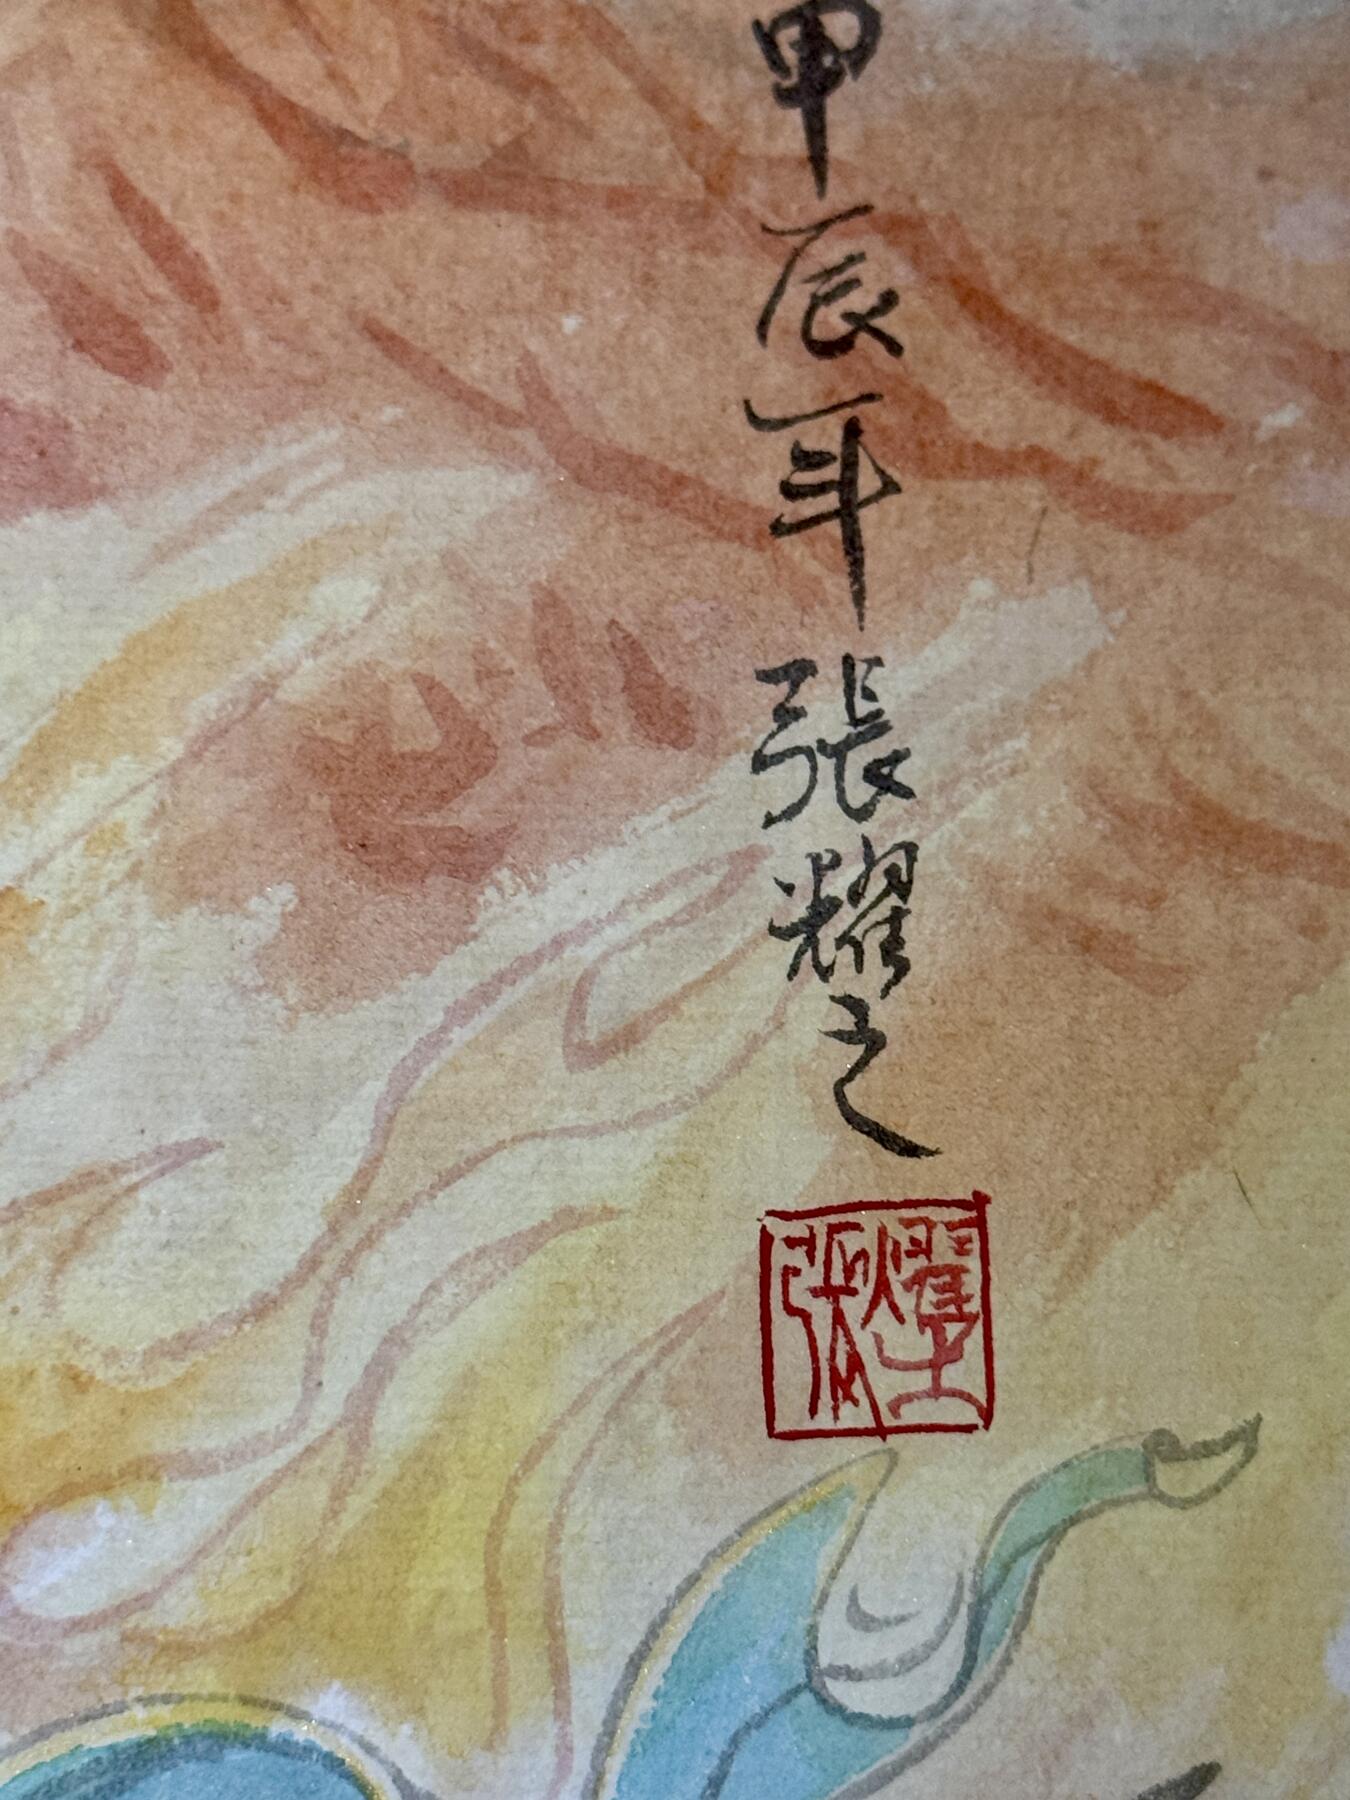 甲辰年張耀之
張耀之